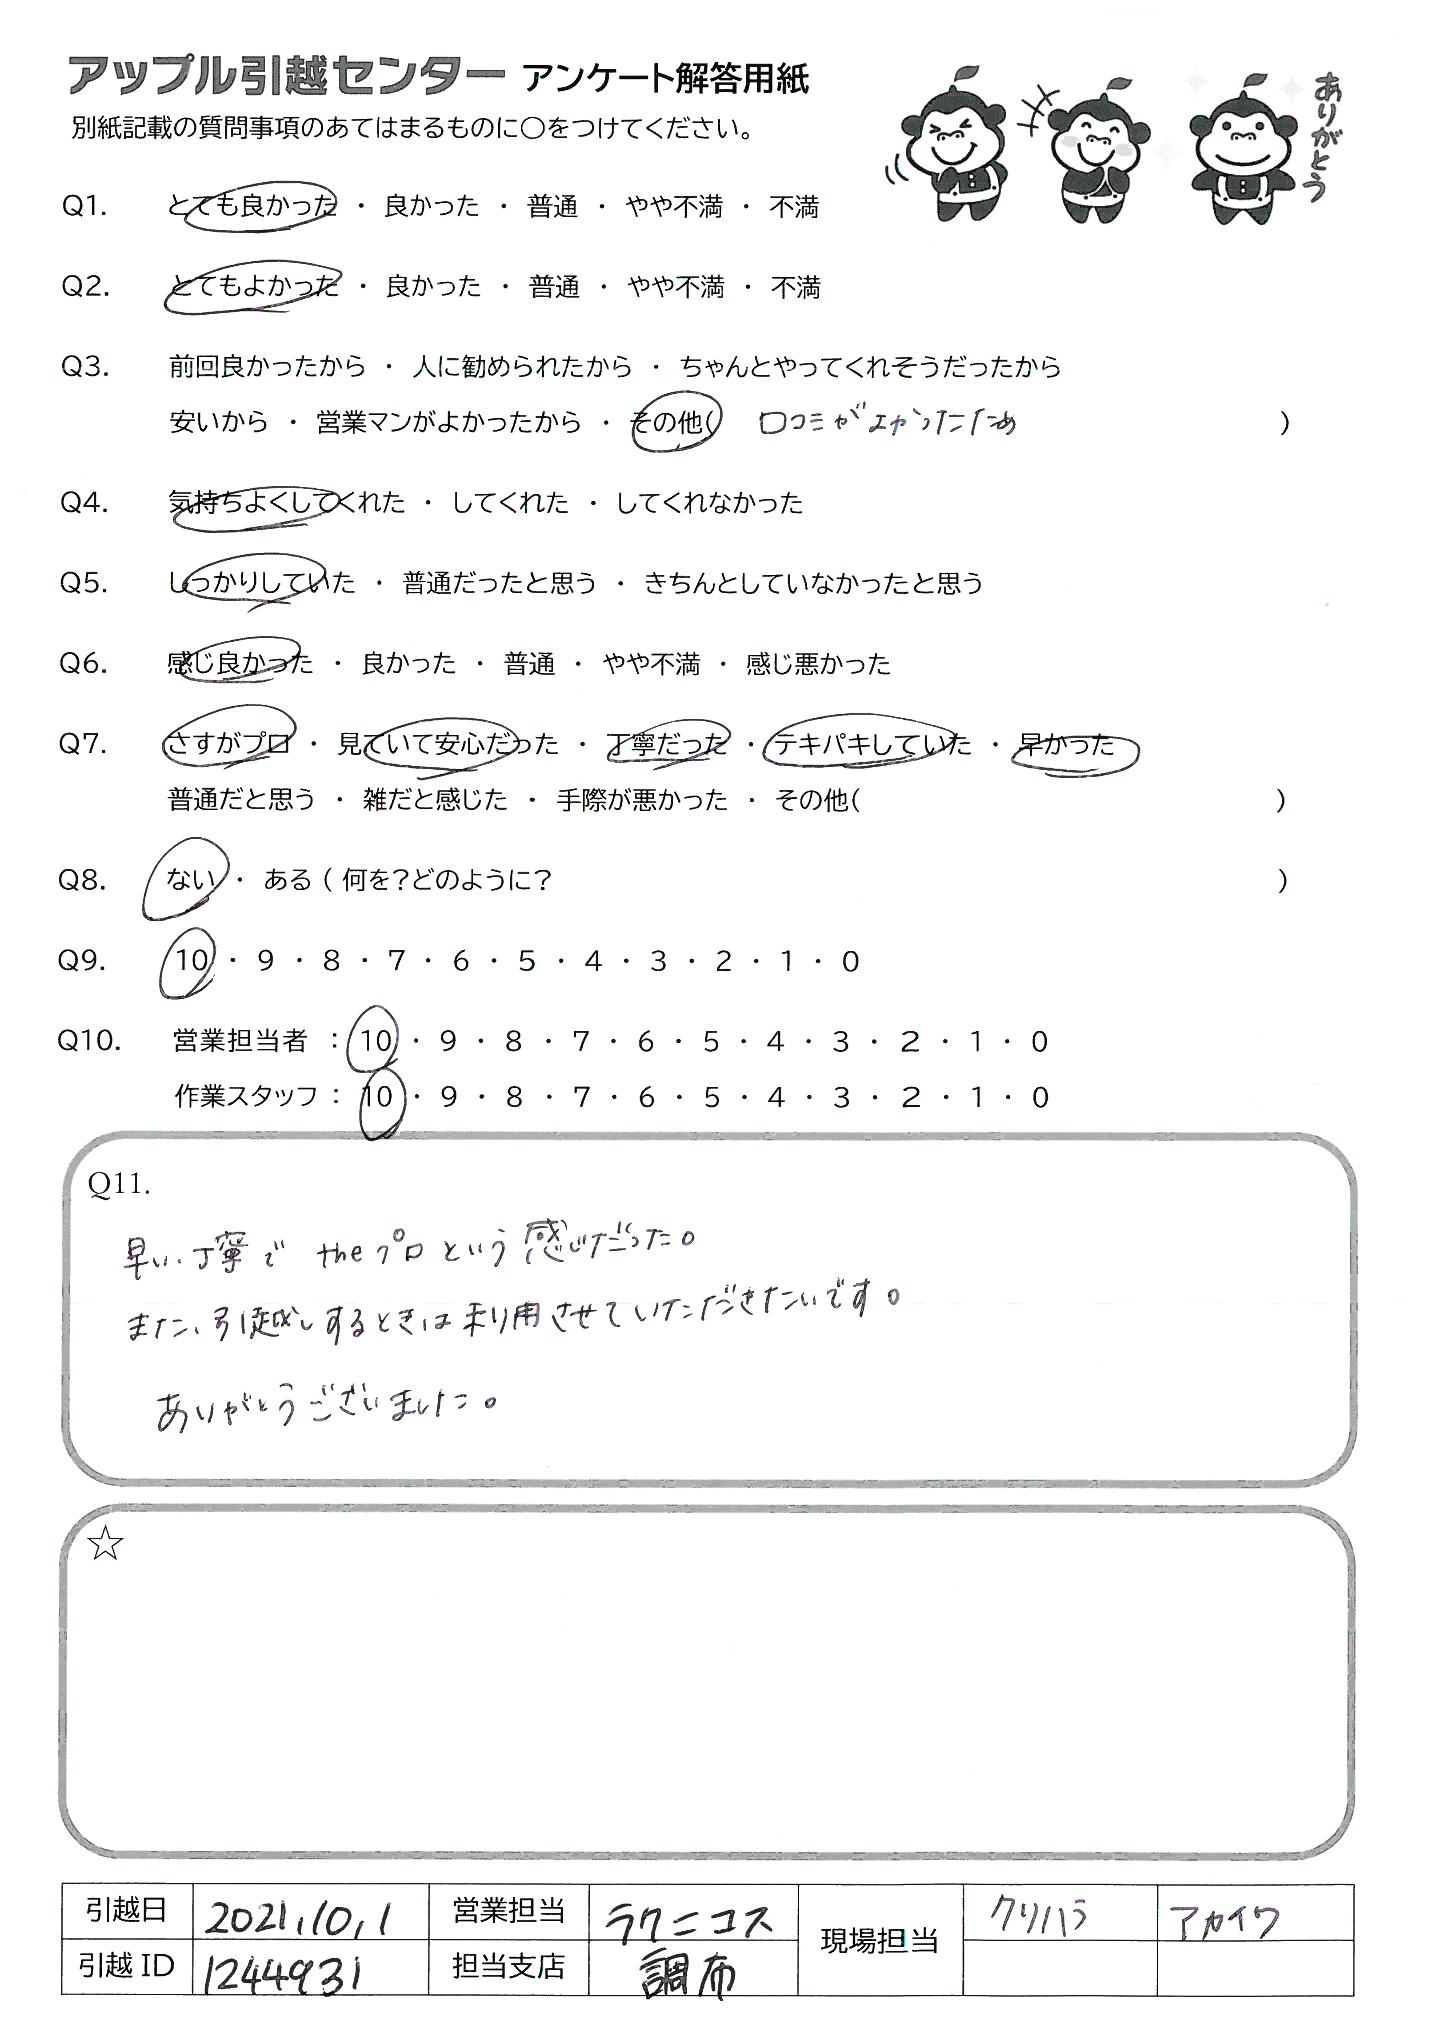 アップル引越センター アンケート解答用紙
ありがとう
別紙記載の質問事項のあてはまるものに○をつけてください。
Q1. とても良かった ・ 良かった ・ 普通 ・ やや不満 ・ 不満
Q2. とてもよかった ・ 良かった ・ 普通 ・ やや不満 ・ 不満
Q3. 前回良かったから ・ 人に勧められたから ・ ちゃんとやってくれそうだったから
安いから ・ 営業マンがよかったから ・ その他( 口コミがよかったため )
Q4. 気持ちよくしてくれた ・ してくれた ・ してくれなかった
Q5. しっかりしていた ・ 普通だったと思う ・ きちんとしていなかったと思う
Q6. 感じ良かった ・ 良かった ・ 普通 ・ やや不満 ・ 感じ悪かった
Q7. さすがプロ ・ 見ていて安心だった ・ 丁寧だった ・ テキパキしていた ・ 早かった
普通だと思う ・ 雑だと感じた ・ 手際が悪かった ・ その他( )
Q8. ない ・ ある ( 何を?どのように? )
Q9. 10 ・ 9 ・ 8 ・ 7 ・ 6 ・ 5 ・ 4 ・ 3 ・ 2 ・ 1 ・ 0
Q10. 営業担当者 : 10 ・ 9 ・ 8 ・ 7 ・ 6 ・ 5 ・ 4 ・ 3 ・ 2 ・ 1 ・ 0
作業スタッフ : 10 ・ 9 ・ 8 ・ 7 ・ 6 ・ 5 ・ 4 ・ 3 ・ 2 ・ 1 ・ 0
Q11.
早い、丁寧で theプロという感じだった。
また、引越しするときは利用させていただきたいです。
ありがとうございました。
☆
引越日 2021.10.1 営業担当 ラクニコス 現場担当 クリハラ アカイワ
引越ID 1244931 担当支店 調布